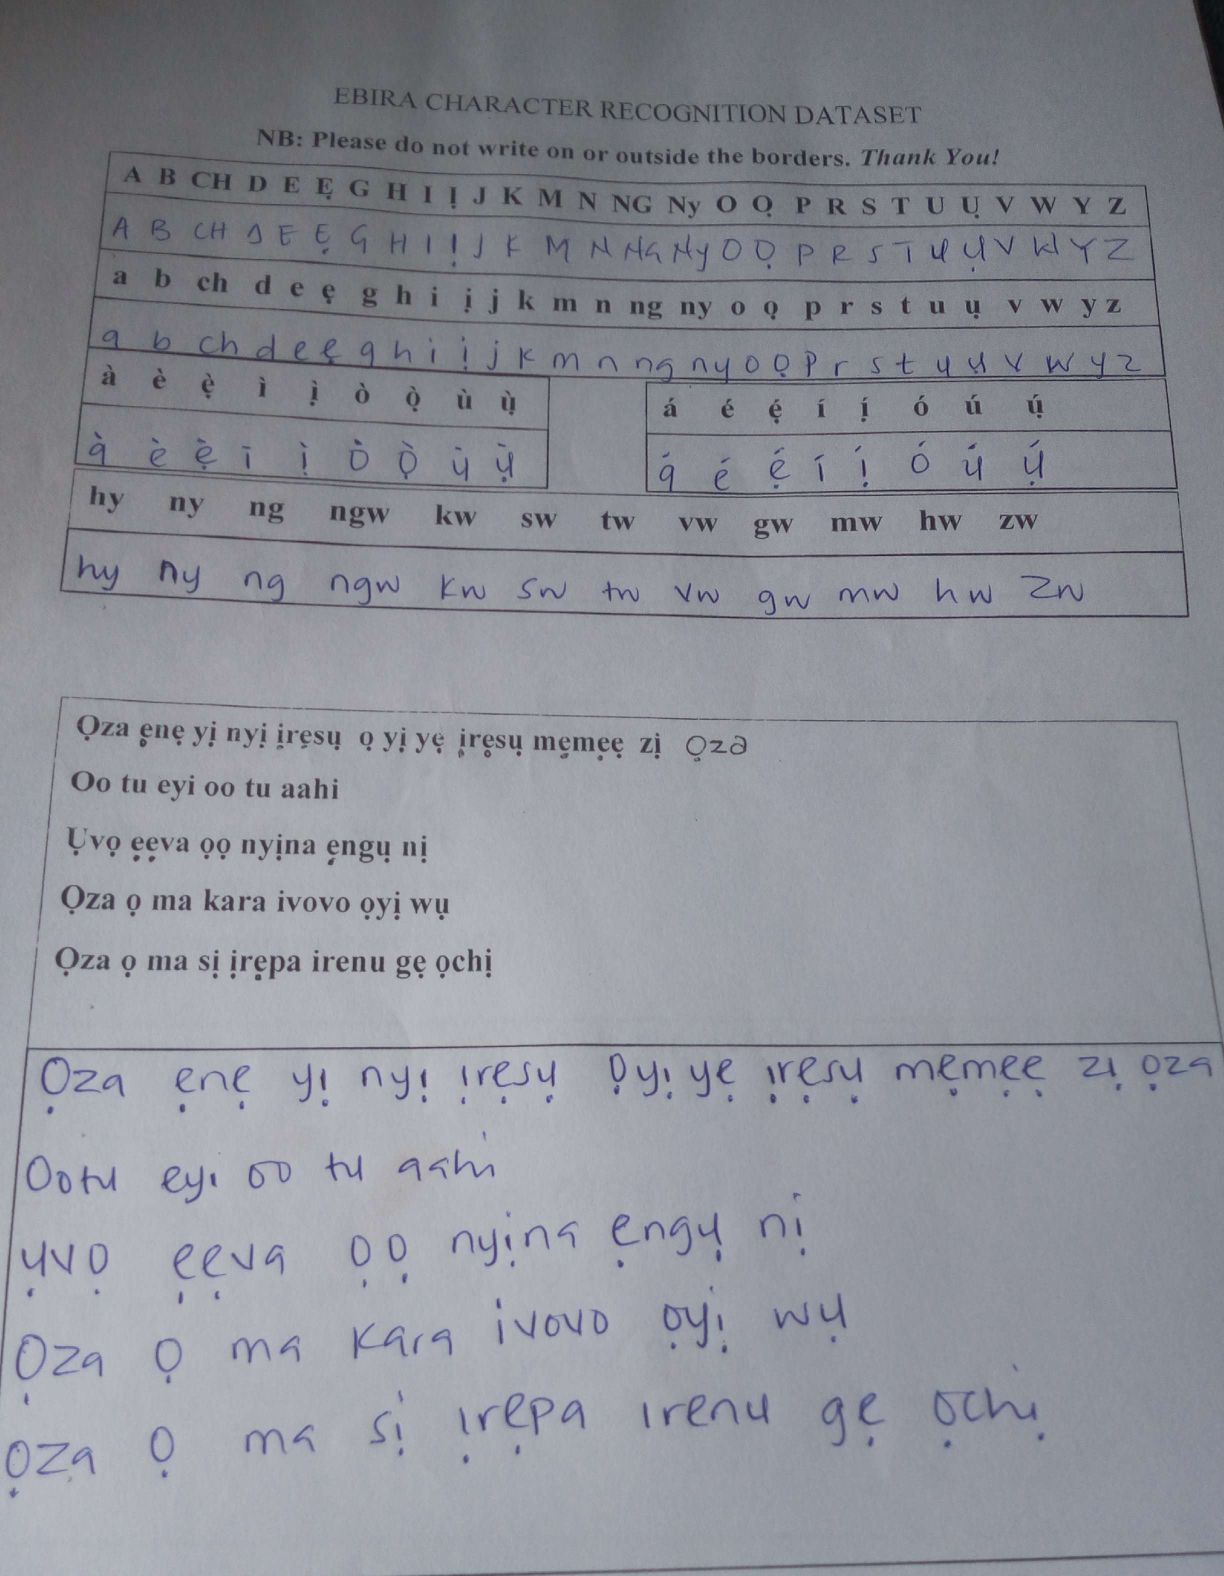 EBIRA CHARACTER RECOGNITION DATASET
NB: Please do not write on or outside the borders. Thank You!
A B CH D E Ẹ G H I Ị J K M N NG Ny O Ọ P R S T U Ụ V W Y Z
A B CH D E Ẹ G H I Ị J K M N NG Ny O Ọ P R S T U Ụ V W Y Z
a b ch d e ẹ g h i ị j k m n ng ny o ọ p r s t u ụ v w y z
a b ch d e ẹ g h i ị j k m n ng ny o ọ p r s t u ụ v w y z
à è ẹ̀ ì ị̀ ò ọ̀ ù ụ̀ á é ẹ́ í ị́ ó ú ụ́
à è ẹ̀ ì ị̀ ò ọ̀ ù ụ̀ á é ẹ́ í ị́ ó ú ụ́
hy ny ng ngw kw sw tw vw gw mw hw zw
hy ny ng ngw kw sw tw vw gw mw hw zw
Ọza ẹnẹ yị nyị ịrẹsụ ọ yị yẹ ịrẹsụ mẹmẹẹ zị ọza
Oo tu eyi oo tu aahi
Ụvọ ẹẹva ọọ nyịna ẹngụ nị
Ọza ọ ma kara ivovo ọyị wụ
Ọza ọ ma sị ịrẹpa irenu gẹ ọchị
Ọza ẹnẹ yị nyị ịrẹsụ ọyị yẹ ịrẹsụ mẹmẹẹ zị ọza
Ootu eyi oo tu aahi
Ụvọ ẹẹva ọọ nyịna ẹngụ nị
Ọza ọ ma kara ivovo ọyị wụ
Ọza ọ ma sị ịrẹpa irenu gẹ ọchị